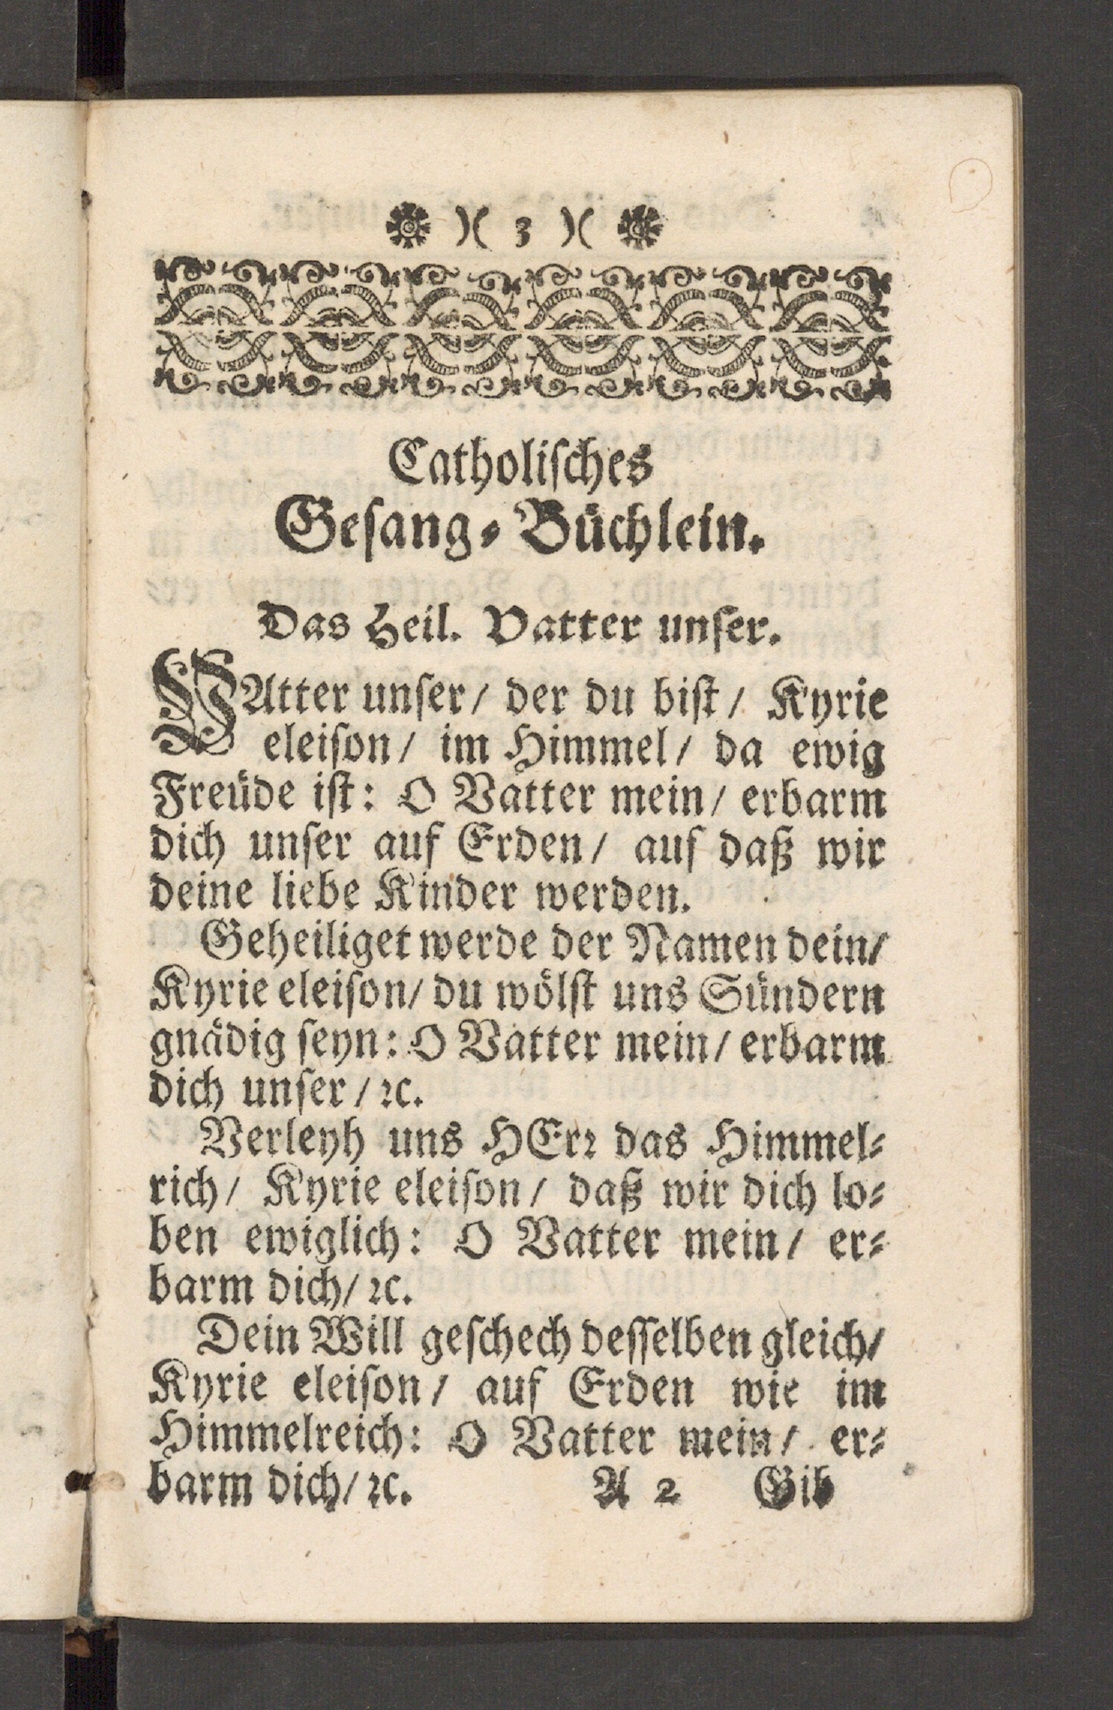 )( 3 )(
Catholiſches
Geſang⸗Büchlein.
Das Heil. Vatter unſer.
VAtter unſer/ der du biſt/ Kyrie
eleiſon/ im Himmel/ da ewig
Freüde iſt: O Vatter mein/ erbarm
dich unſer auf Erden/ auf daß wir
deine liebe Kinder werden.
Geheiliget werde der Namen dein/
Kyrie eleiſon/ du wölſt uns Sündern
gnädig ſeyn: O Vatter mein/ erbarm
dich unſer/ ꝛc.
Verleyh uns HErꝛ das Himmel⸗
rich/ Kyrie eleiſon/ daß wir dich lo⸗
ben ewiglich: O Vatter mein/ er⸗
barm dich/ ꝛc.
Dein Will geſchech deſſelben gleich/
Kyrie eleiſon/ auf Erden wie im
Himmelreich: O Vatter mein/ er⸗
barm dich/ ꝛc. A 2 Gib